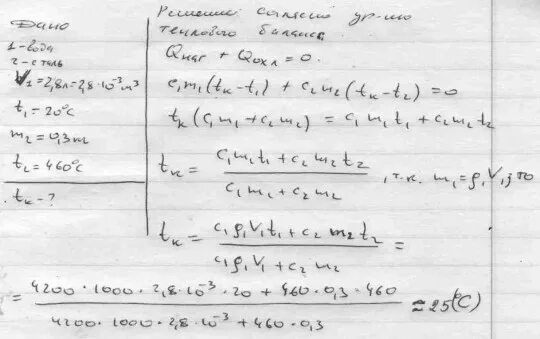 Дано
1-вода
2-сталь
V₁=2,8л=2,8·10⁻³м³
t₁=20°C
m₂=0,3кг
t₂=460°C
tк-?
Решение согласно ур-ию
теплового баланса
Qнаг + Qохл = 0.
c₁m₁(tк-t₁) + c₂m₂(tк-t₂)=0
tк(c₁m₁+c₂m₂) = c₁m₁t₁+c₂m₂t₂
tк = (c₁m₁t₁+c₂m₂t₂)/(c₁m₁+c₂m₂) , т.к. m₁=ρ₁V₁, то
tк = (c₁ρ₁V₁t₁+c₂m₂t₂)/(c₁ρ₁V₁+c₂m₂) =
= (4200·1000·2,8·10⁻³·20+460·0,3·460)/(4200·1000·2,8·10⁻³+460·0,3) ≈25(°C)